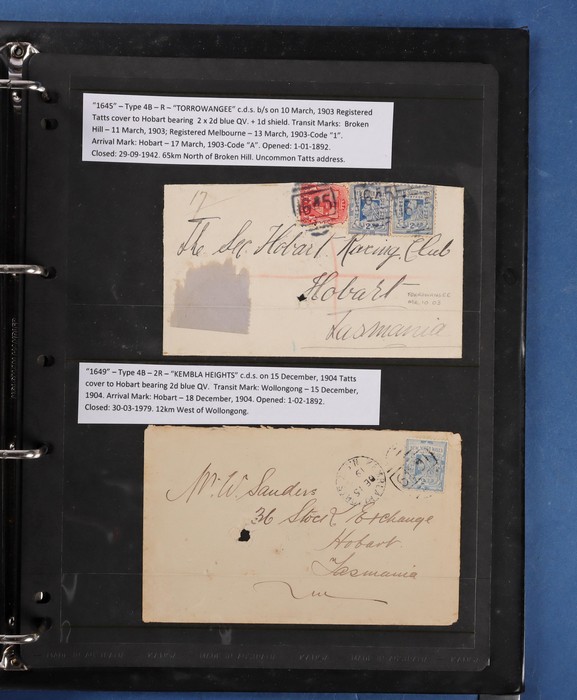 "1645" – Type 4B – R – "TORROWANGEE" c.d.s. b/s on 10 March, 1903 Registered
Tatts cover to Hobart bearing 2 x 2d blue QV. + 1d shield. Transit Marks: Broken
Hill – 11 March, 1903; Registered Melbourne – 13 March, 1903-Code "1".
Arrival Mark: Hobart – 17 March, 1903-Code "A". Opened: 1-01-1892.
Closed: 29-09-1942. 65km North of Broken Hill. Uncommon Tatts address.
17
1645
The Sec. Hobart Racing Club
Hobart
TORROWANGEE
Tasmania
"1649" – Type 4B – 2R – "KEMBLA HEIGHTS" c.d.s. on 15 December, 1904 Tatts
cover to Hobart bearing 2d blue QV. Transit Mark: Wollongong – 15 December,
1904. Arrival Mark: Hobart – 18 December, 1904. Opened: 1-02-1892.
Closed: 30-03-1979. 12km West of Wollongong.
Mr W. Sanders
36 Stock Exchange
Hobart
Tasmania